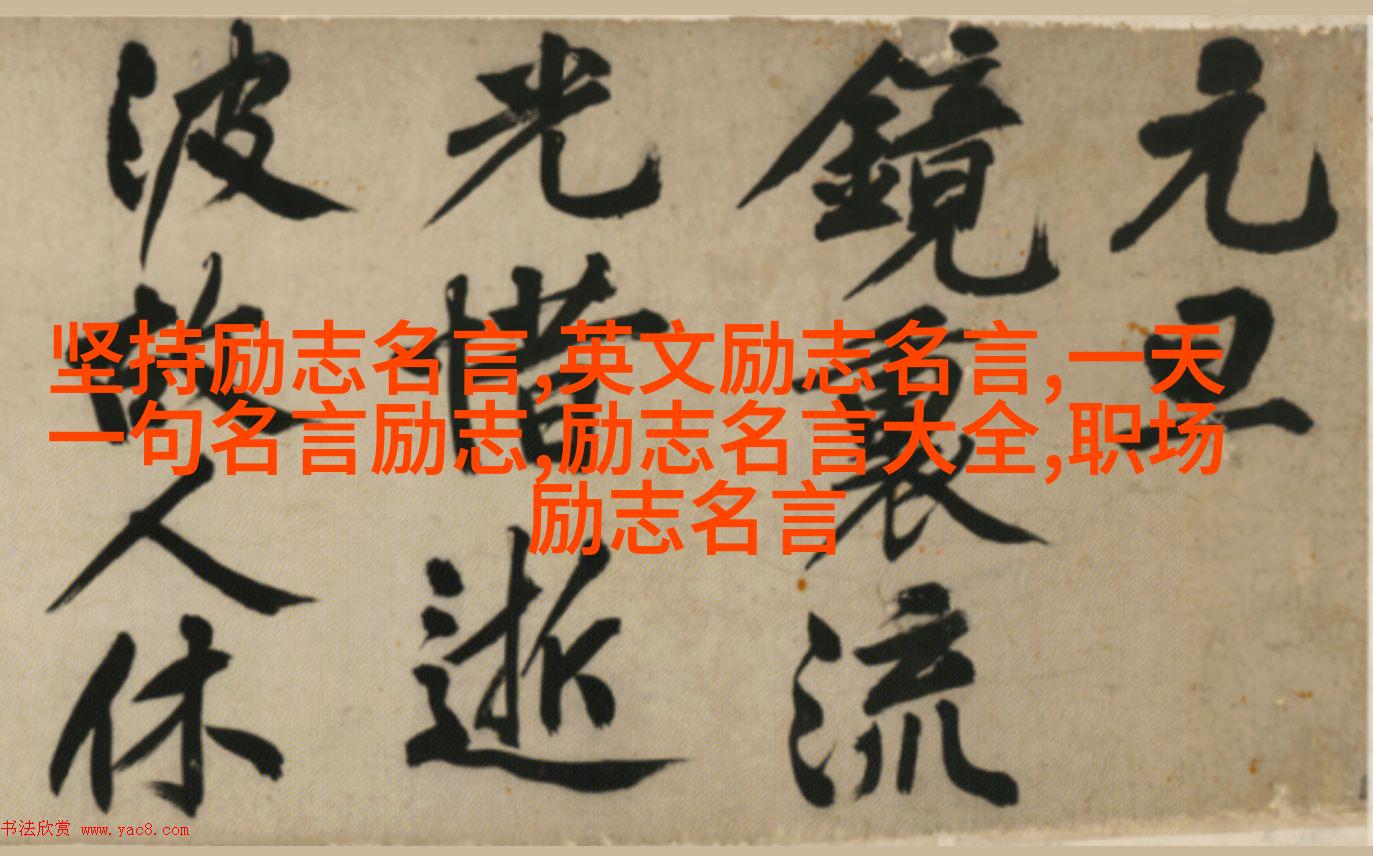 元旦
鏡裏流
光惜逝
波故人休
坚持励志名言,英文励志名言,一天
一句名言励志,励志名言大全,职场
励志名言
书法欣赏 www.yac8.com